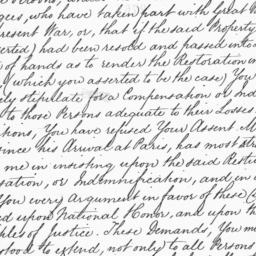 gees, who have taken part with Great
resent War, or, that if the said Property
erted) had been resold and passed into
of hands as to render the Restoration im
which you asserted to be the case) You
ely stipulate for a Compensation or Ind
to those Persons adequate to their Losses
itions, You have refused Your Assent M
since his Arrival at Paris, has most str
me in insisting upon the said Resti
sation, or Indemnification, and in
You every Argument in favor of these
ed upon National Honor, and upon th
ples of Justice. These Demands, You mu
stood to extend, not only to all Persons